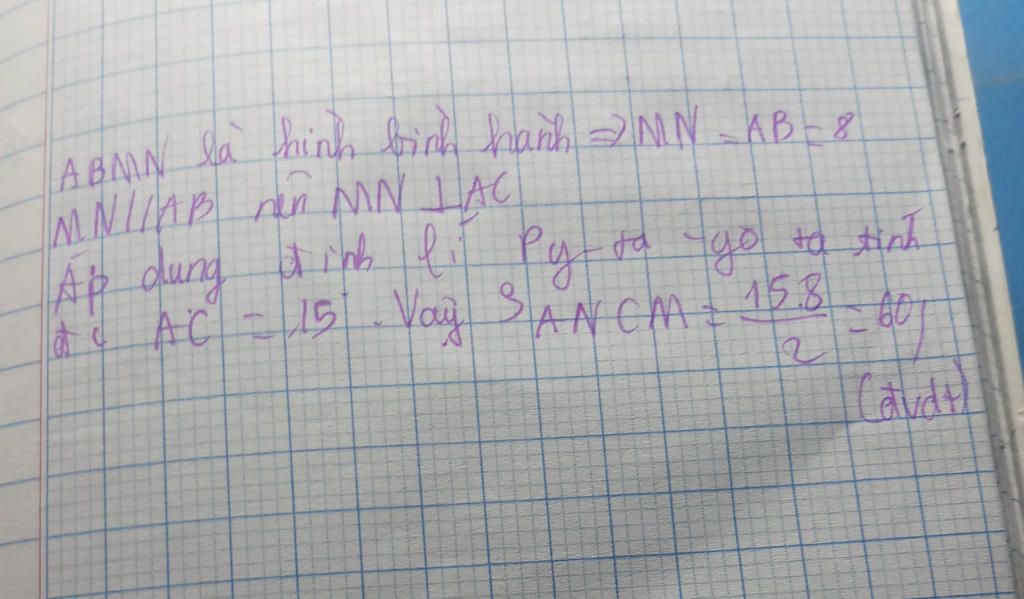 ABMN là hình bình hành ⇒ MN = AB = 8
MN // AB nên MN ⊥ AC
Áp dung định lí Py-ta-go ta tính
đc AC = 15. Vaỹ SANCM = 15.8/2 = 60
(đvdt)